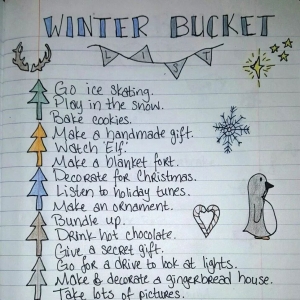 WINTER BUCKET
LIST
Go ice skating.
Play in the snow.
Bake cookies.
Make a handmade gift.
Watch 'Elf.'
Make a blanket fort.
Decorate for Christmas.
Listen to holiday tunes.
Make an ornament.
Bundle up.
Drink hot chocolate.
Give a secret gift.
Go for a drive to look at lights.
Make & decorate a gingerbread house.
Take lots of pictures.